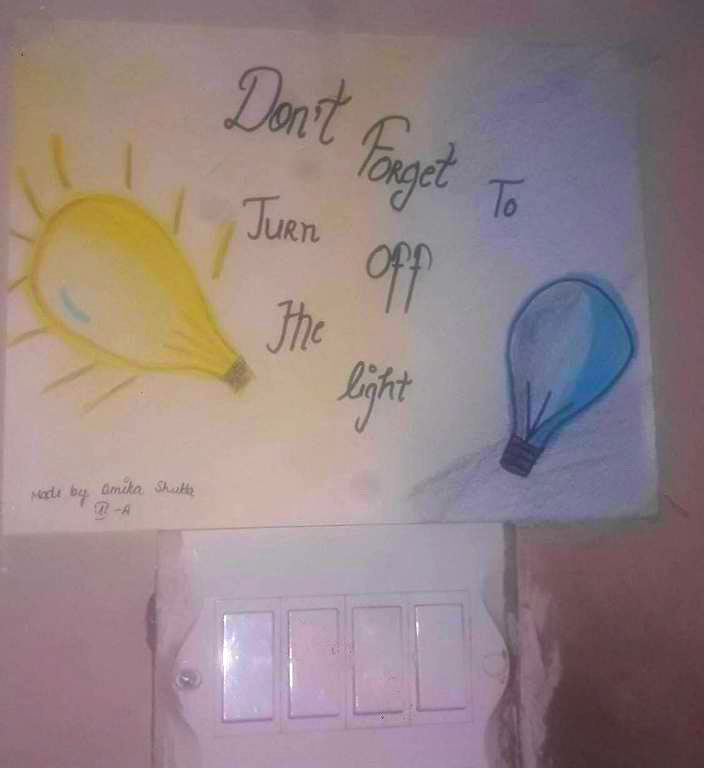 Don't
Forget To
Turn
Off
The
light
Made by Amika Shukla
-A